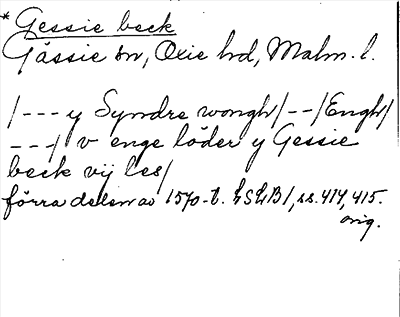 * Gessie beck
Gässie sn, Oxie hd, Malm. l.
/--- y Syndre wongh/--/Engh/
---/ v enge löder y Gessie
beck vij les/
förra delen av 1570-t. LSLB I, ss. 414, 415.
orig.